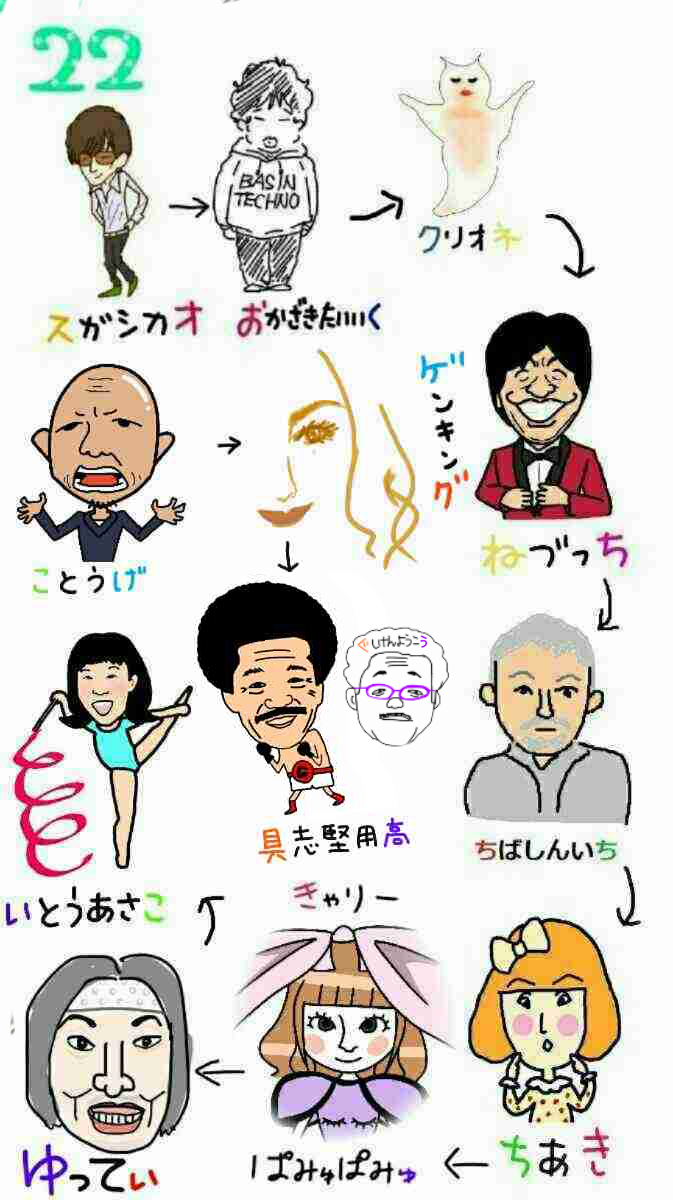 22
BASIN
TECHNO
スガシカオ
おかざきたいいく
クリオネ
ゲンキング
ねづっち
ことうげ
ぐしけんようこう
具志堅用高
ちばしんいち
いとうあさこ
きゃりー
ぱみゅぱみゅ
ちあき
ゆってぃ